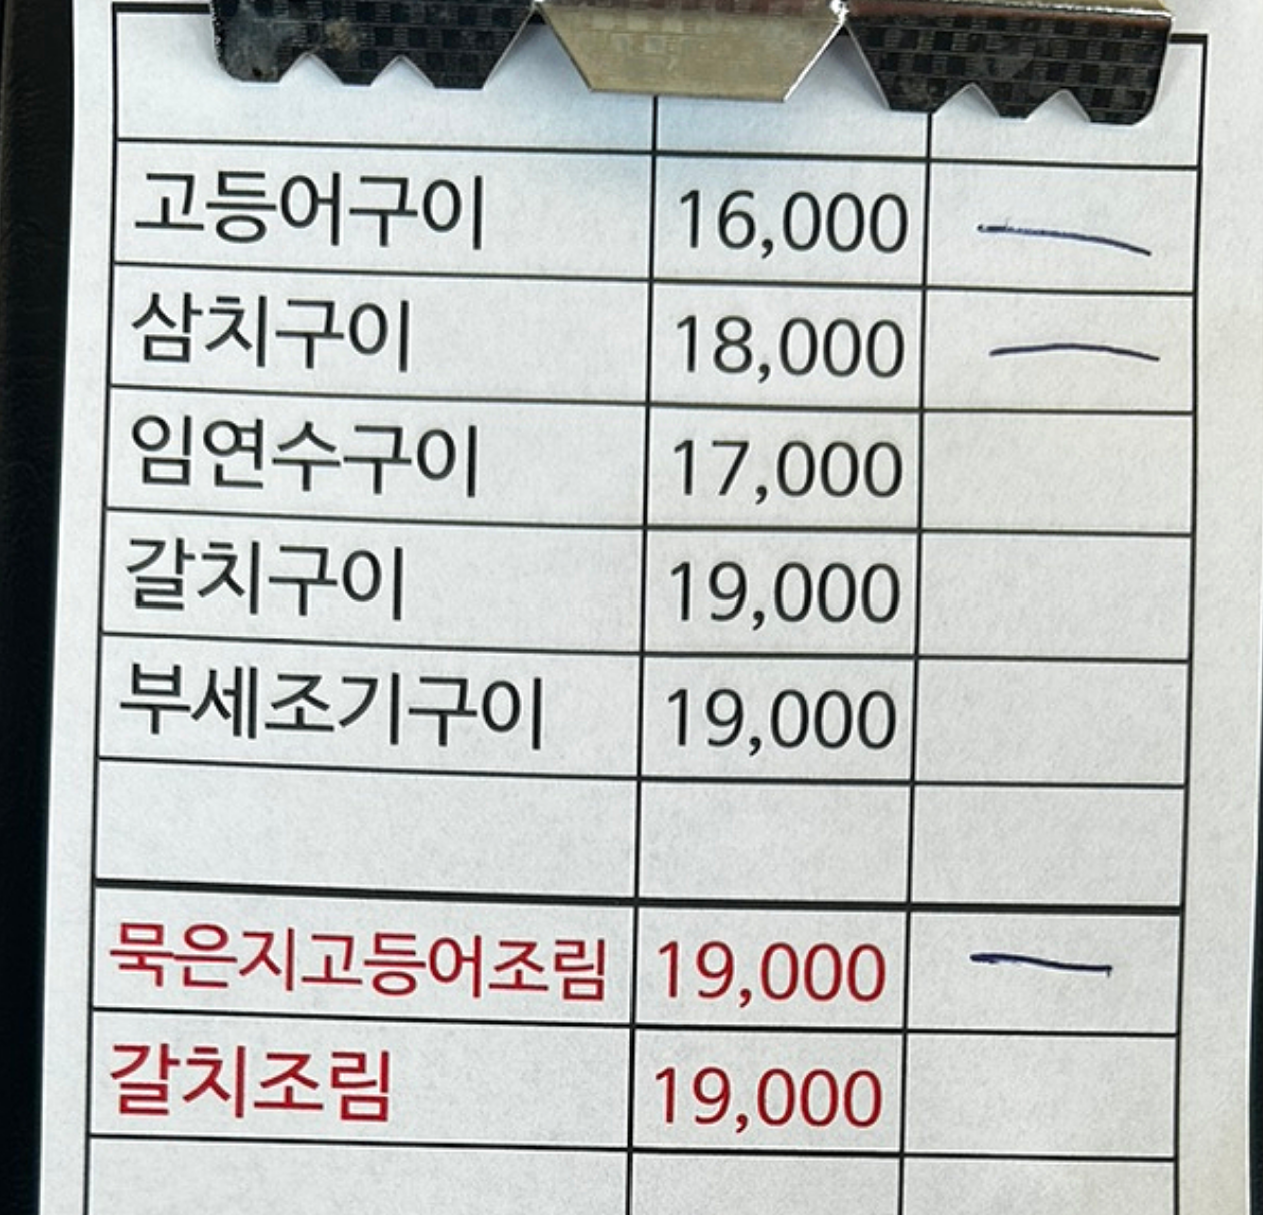 고등어구이 16,000
삼치구이 18,000
임연수구이 17,000
갈치구이 19,000
부세조기구이 19,000
묵은지고등어조림 19,000
갈치조림 19,000